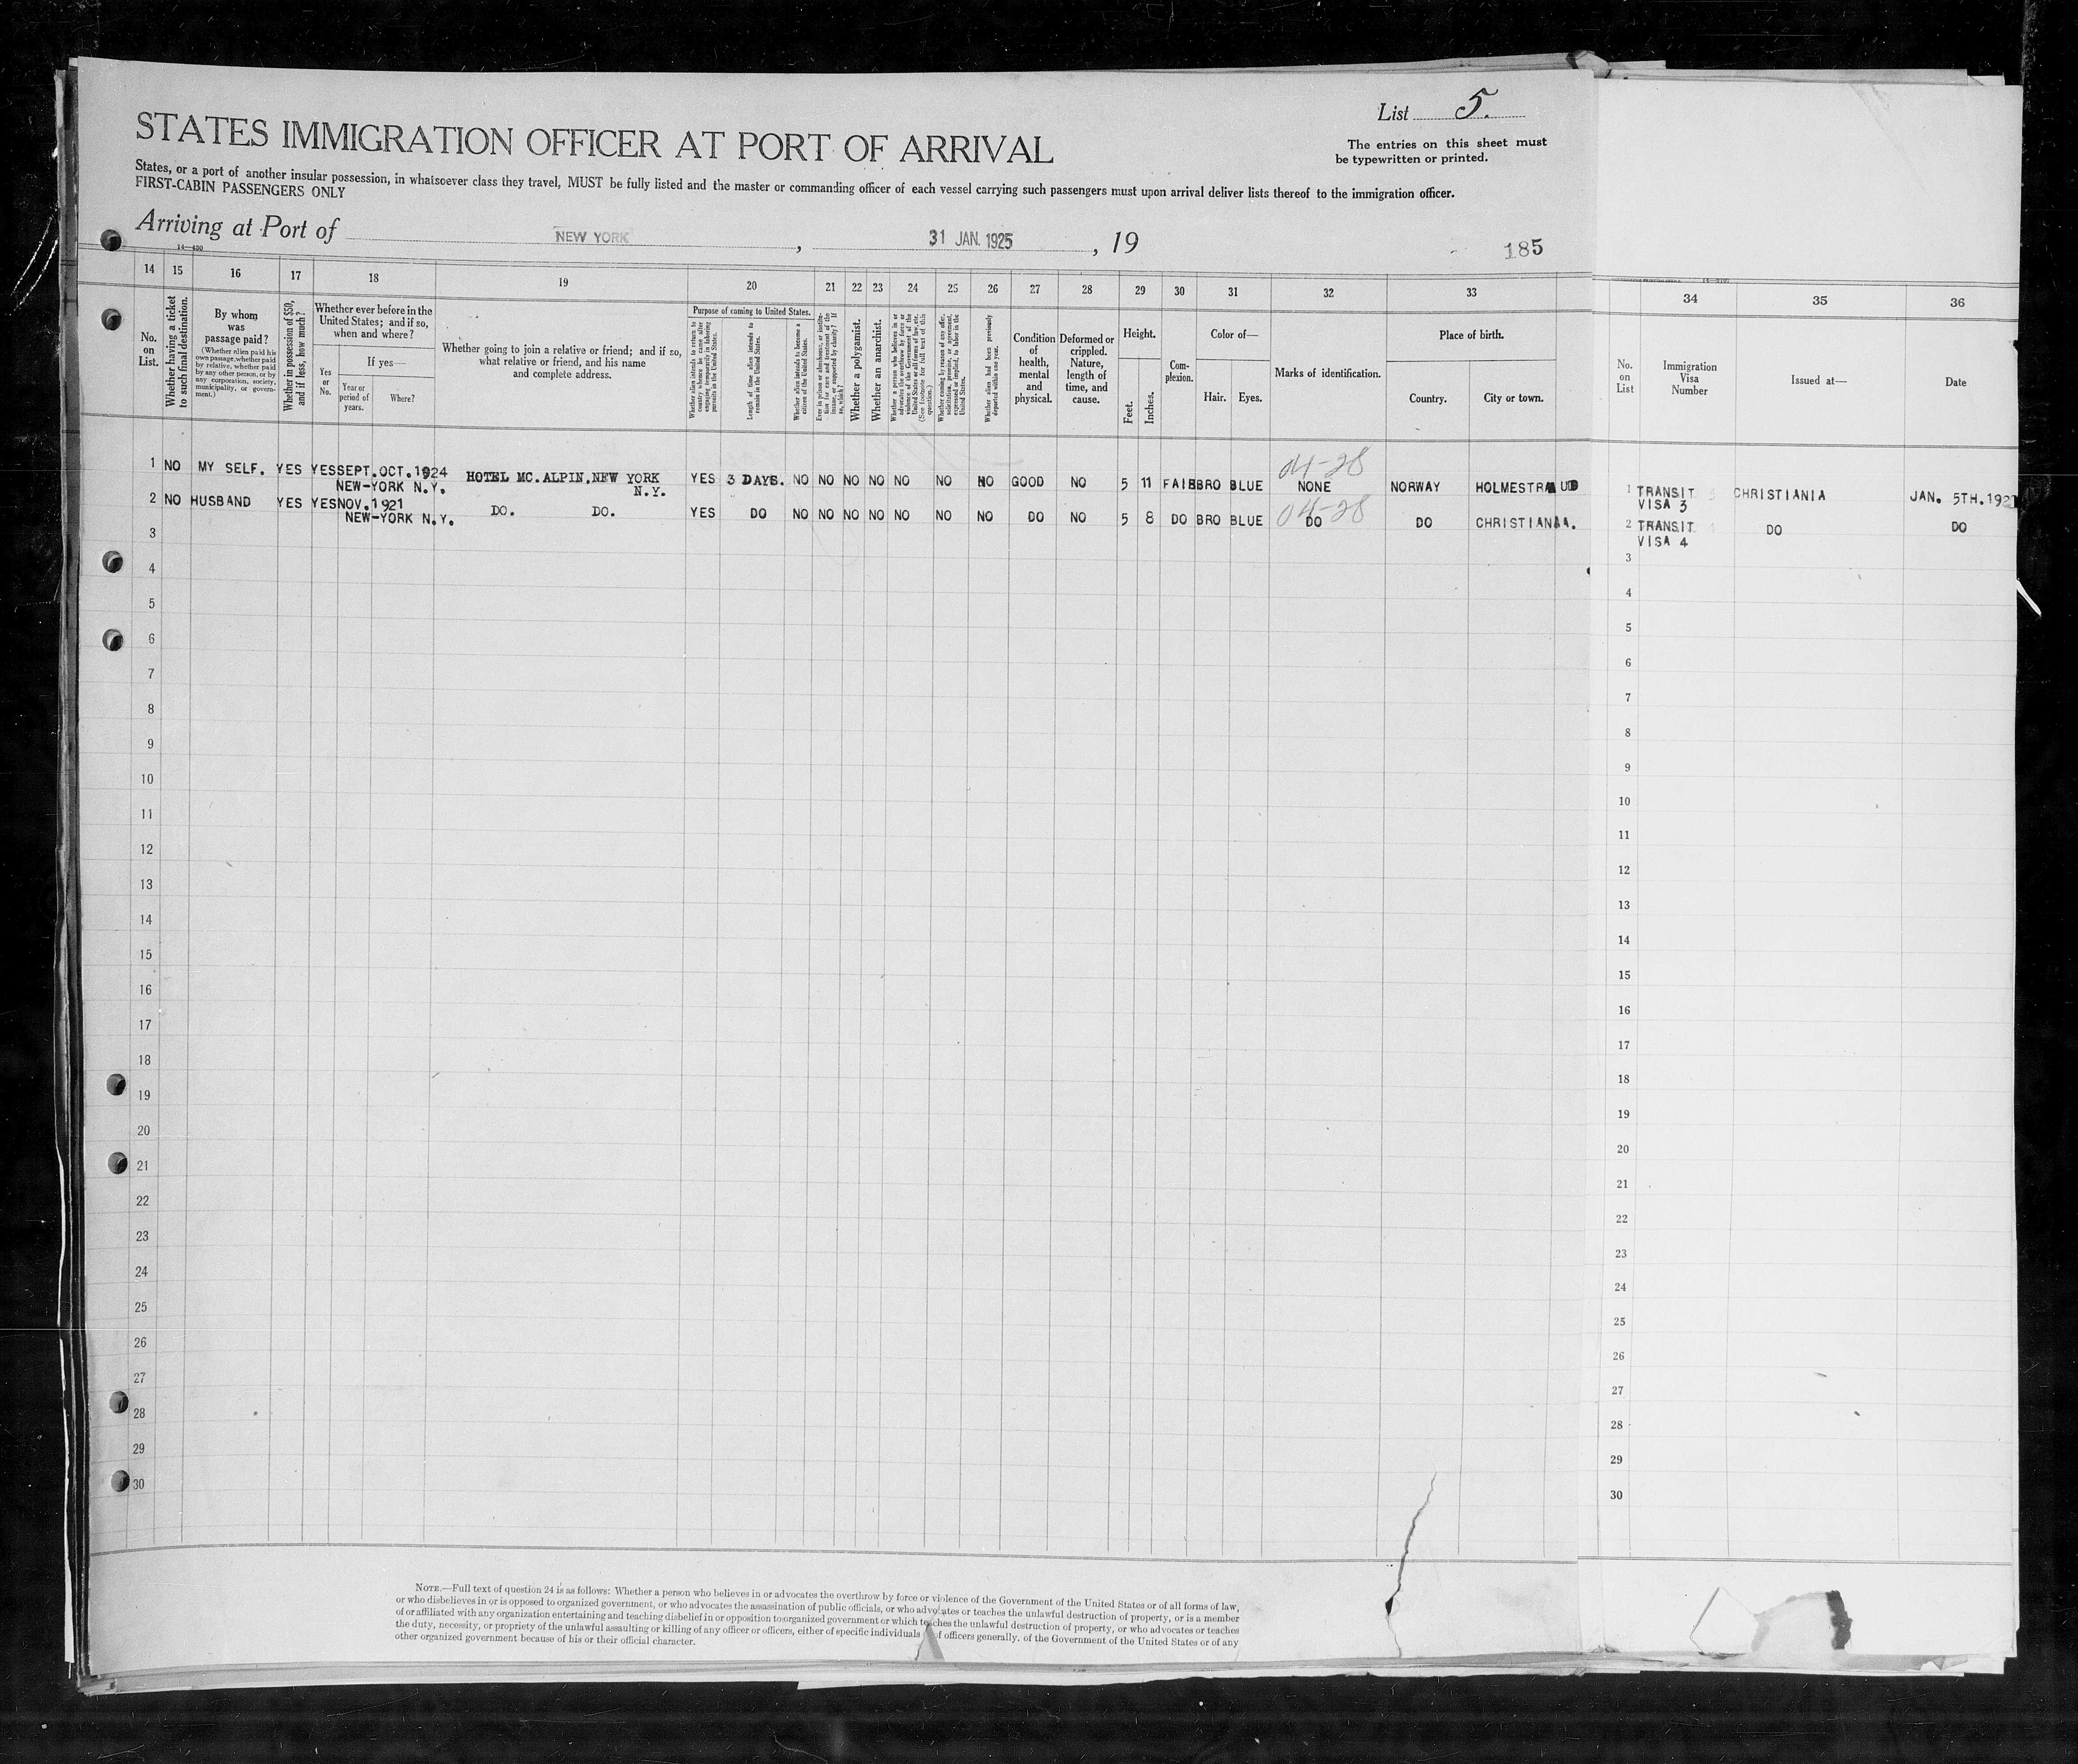 List 5.
The entries on this sheet must
be typewritten or printed.
STATES IMMIGRATION OFFICER AT PORT OF ARRIVAL
States, or a port of another insular possession, in whatsoever class they travel, MUST be fully listed and the master or commanding officer of each vessel carrying such passengers must upon arrival deliver lists thereof to the immigration officer.
FIRST-CABIN PASSENGERS ONLY
Arriving at Port of NEW YORK, 31 JAN. 1925, 19
185
14—430
14 15 16 17 18 19 20 21 22 23 24 25 26 27 28 29 30 31 32 33 34 35 36
No. on List.
Whether having a ticket to such final destination.
By whom was passage paid?
(Whether alien paid his own passage, whether paid by relative, whether paid by any other person, or by any corporation, society, municipality, or government.)
Whether in possession of $50, and if less, how much?
Whether ever before in the United States; and if so, when and where?
Yes or No.
If yes—
Year or period of years.
Where?
Whether going to join a relative or friend; and if so, what relative or friend, and his name and complete address.
Purpose of coming to United States.
Whether alien intends to return to country whence he came after engaging temporarily in laboring pursuits in the United States.
Length of time alien intends to remain in the United States.
Whether alien intends to become a citizen of the United States.
Ever in prison or almshouse, or institution for care and treatment of the insane, or supported by charity? If so, which?
Whether a polygamist.
Whether an anarchist.
Whether a person who believes in or advocates the overthrow by force or violence of the Government of the United States or all forms of law, etc. (See footnote for full text of this question.)
Whether coming by reason of any offer, solicitation, promise, or agreement, expressed or implied, to labor in the United States.
Whether alien had been previously deported within one year.
Condition of health, mental and physical.
Deformed or crippled. Nature, length of time, and cause.
Height.
Feet.
Inches.
Complexion.
Color of—
Hair.
Eyes.
Marks of identification.
Place of birth.
Country.
City or town.
No. on List
Immigration Visa Number
Issued at—
Date
04-28
1 NO MY SELF. YES YES SEPT.OCT.1924 HOTEL MC.ALPIN.NEW YORK YES 3 DAYS. NO NO NO NO NO NO NO GOOD NO 5 11 FAIR BRO BLUE NONE NORWAY HOLMESTRAUD
NEW-YORK N.Y. N.Y.
1 TRANSIT 3 CHRISTIANIA JAN. 5TH.192
VISA 3
04-28
2 NO HUSBAND YES YES NOV.1921 DO. DO. YES DO NO NO NO NO NO NO NO DO NO 5 8 DO BRO BLUE DO DO CHRISTIANIA.
NEW-YORK N.Y.
2 TRANSIT 4 DO DO
VISA 4
3 3
4 4
5 5
6 6
7 7
8 8
9 9
10 10
11 11
12 12
13 13
14 14
15 15
16 16
17 17
18 18
19 19
20 20
21 21
22 22
23 23
24 24
25 25
26 26
27 27
28 28
29 29
30 30
NOTE.—Full text of question 24 is as follows: Whether a person who believes in or advocates the overthrow by force or violence of the Government of the United States or of all forms of law,
or who disbelieves in or is opposed to organized government, or who advocates the assassination of public officials, or who advocates or teaches the unlawful destruction of property, or is a member
of or affiliated with any organization entertaining and teaching disbelief in or opposition to organized government or which teaches the unlawful destruction of property, or who advocates or teaches
the duty, necessity, or propriety of the unlawful assaulting or killing of any officer or officers, either of specific individuals of officers generally. of the Government of the United States or of any
other organized government because of his or their official character.